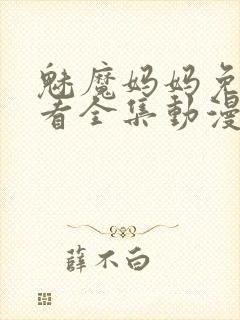 魅魔妈妈免
看全集動漫
薛不白